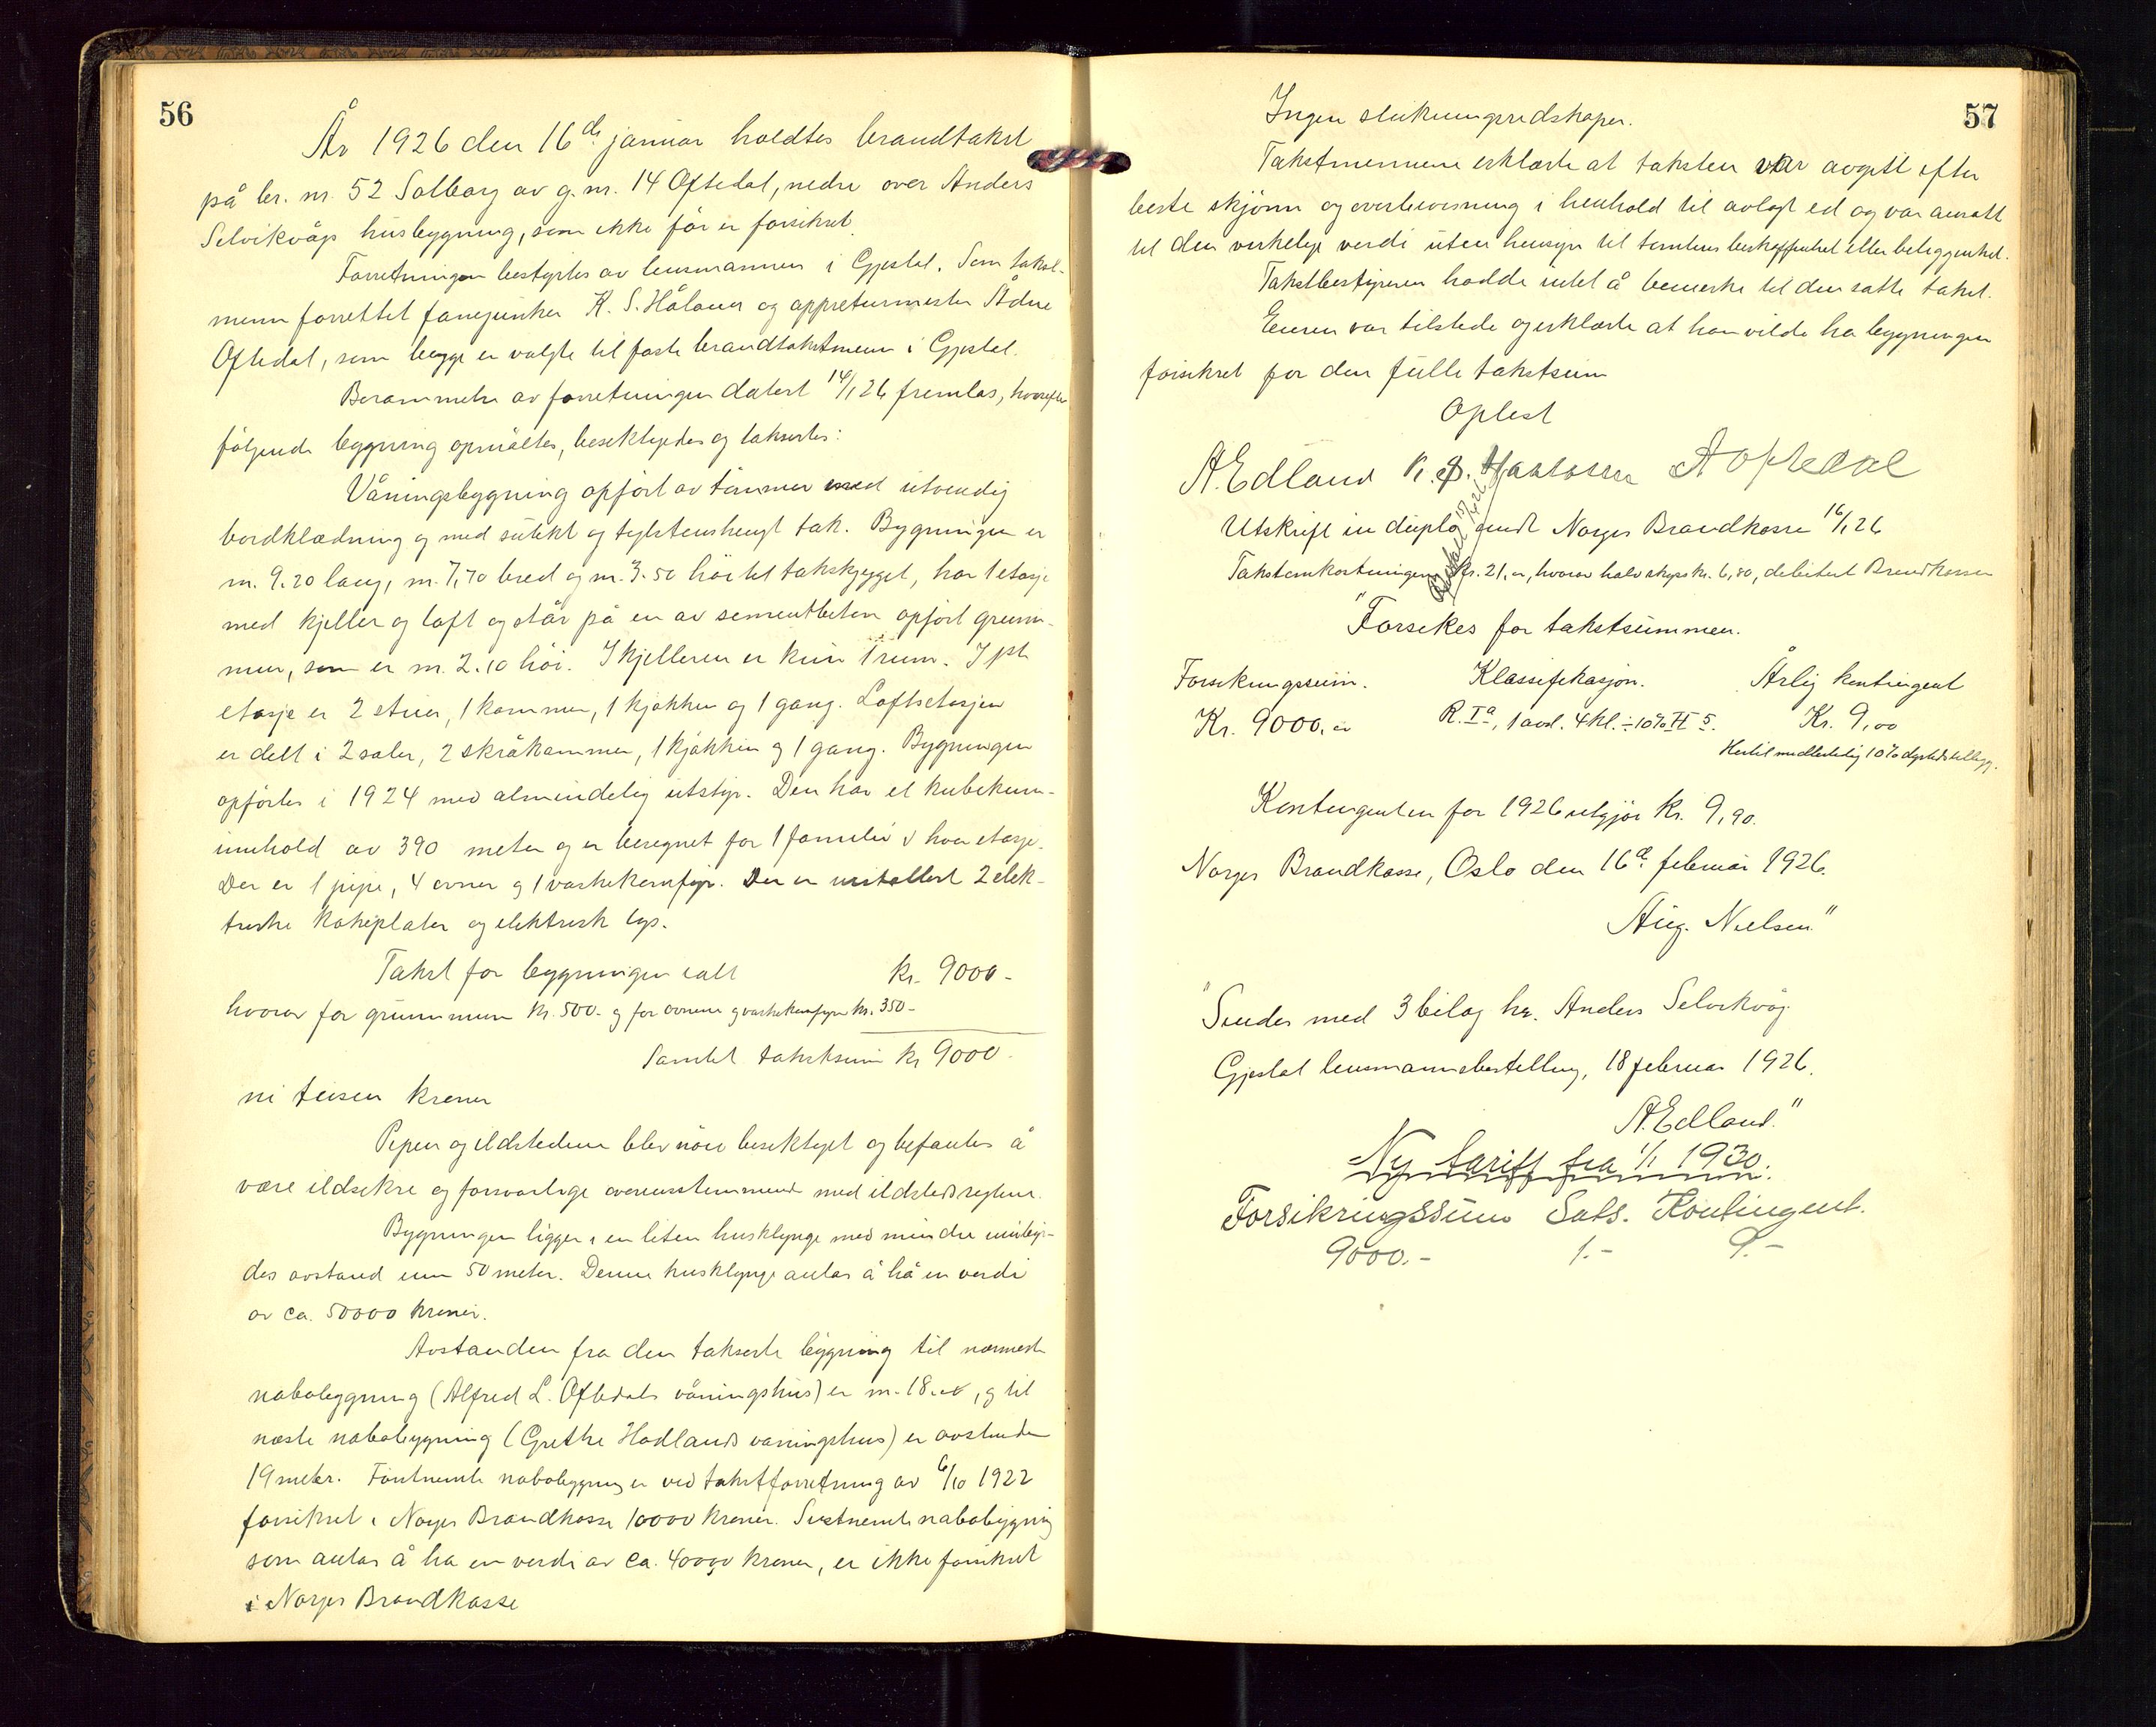 56
År 1926 den 16de januar holdtes brandtakst
på br. nr. 52 Solborg av g. nr. 14 Oftedal, nedre over Anders
Selvikvågs husbygning, som ikke før er forsikret.
Forretningen bestyrtes av lensmannen i Gjestal. Som takst-
menn forrettet fanejunker K. S. Håland og appreturmester Ådne
Oftedal, som begge er valgte til faste brandtakstmenn i Gjestal.
Berammelse av forretningen datert 14/1 26 fremlas, hvorefter
følgende bygning opmåltes, besiktigedes og takseres:
Våningsbygning opført av tømmer med utvendig
bordklædning og med sutekt og teglstenshengt tak. Bygningen er
m. 9.20 lang, m. 7,70 bred og m. 3.50 höi til takskjegget, har 1 etasje
med kjeller og loft og står på en av sementbeton opført grunn-
mur, som er m. 2.10 høi. I kjelleren er kun 1 rum. I 1ste
etasje er 2 stuer, 1 kammer, 1 kjøkken og 1 gang. Loftsetasjen
er delt i 2 saler, 2 skråkammer, 1 kjøkken og 1 gang. Bygningen
opførtes i 1924 med almindelig utstyr. Den har et kubikkum-
innhold av 390 meter og er beregnet for 1 familie i hver etasje.
Der er 1 pipe, 4 ovner og 1 vaskekomfyr. Der er installert 2 elek-
triske kokeplater og elektrisk lys.
Takst for bygningen ialt kr. 9000-
hvorav for grunnmuren kr. 500- og for ovnene og vaskekomfyr kr. 350-
Samlet takstsum kr 9000-
ni tusen kroner
Pipen og ildstedene blev nøie besiktiget og befantes å
være ildsikre og forsvarlige overensstemmende med ildstedsreglene.
Bygningen ligger i en liten husklynge med mindre innbyr-
des avstand enn 50 meter. Denne husklynge antas å ha en verdi
av ca. 50000 kroner.
Avstanden fra den takserte bygning til nærmeste
nabobygning (Alfred L. Oftedals våningshus) er m. 18.00, og til
næste nabobygning (Grethe Hodlands våningshus) er avstanden
19 meter. Førstnevnte nabobygning er ved takstforretning av 6/10 1922
forsikret i Norges Brandkasse 10000 kroner. Sistnevnte nabobygning
som antas å ha en verdi av ca. 4000 kroner, er ikke forsikret
i Norges Brandkasse
57
Ingen slukningsredskaper.
Takstmennene erklærte at taksten var avgitt efter
beste skjønn og overbevisning i henhold til avlagt ed og var ansatt
til den virkelige verdi uten hensyn til tomtens beskaffenhet eller beliggenhet.
Takstbestyreren hadde intet å bemerke til den satte takst.
Eieren var tilstede og erklærte at han vilde ha bygningen
forsikret for den fulle takstsum
Oplest
A. Edland K. S. A Oftedal
Utskrift in duplo sendt Norges Brandkasse 16/1 26
Takstomkostningene kr. 21,00, hvorav halv skyss kr. 6,80, debitert Brandkassen
"Forsikres for takstsummen.
Forsikringssum. Klassifikasjon. Årlig kontingent
Kr. 9000,00 R. Ia, 1 avd. 4 kl. ÷ 10% H 5. Kr. 9,00
Hertil midlertidig 10% dyrtidstillegg.
Kontingenten for 1926 utgjør kr. 9,90.
Norges Brandkasse, Oslo den 16de februar 1926.
Aug. Nielsen"
"Sendes med 3 bilag hr. Anders Selvikvåg.
Gjestal lensmannsbestilling, 18 februar 1926.
A. Edland."
Ny tariff fra 1/1 1930.
Forsikringssum Sats. Kontingent.
9000.- 1.- 9.-